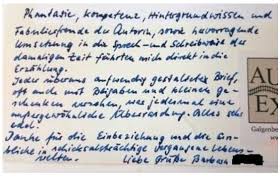 Phantasie, Kompetenz, Hintergrundwissen und
Fabulierfreude der Autorin, sowie hervorragende
Umsetzung in die Sprach- und Schreibweise der
damaligen Zeit führten mich direkt in die
Erzählung.
Jeder überaus aufwendig gestaltete Brief,
oft auch mit Beigaben und kleinen Ge-
schenken versehen, war jedesmal eine
außergewöhnliche Überraschung. Alles sehr
edel.
Danke für die Einbeziehung und die Ein-
blicke in schicksalsträchtige vergangene Lebens-
welten.
Liebe Grüße Barbara
AU
EX
Galgenber